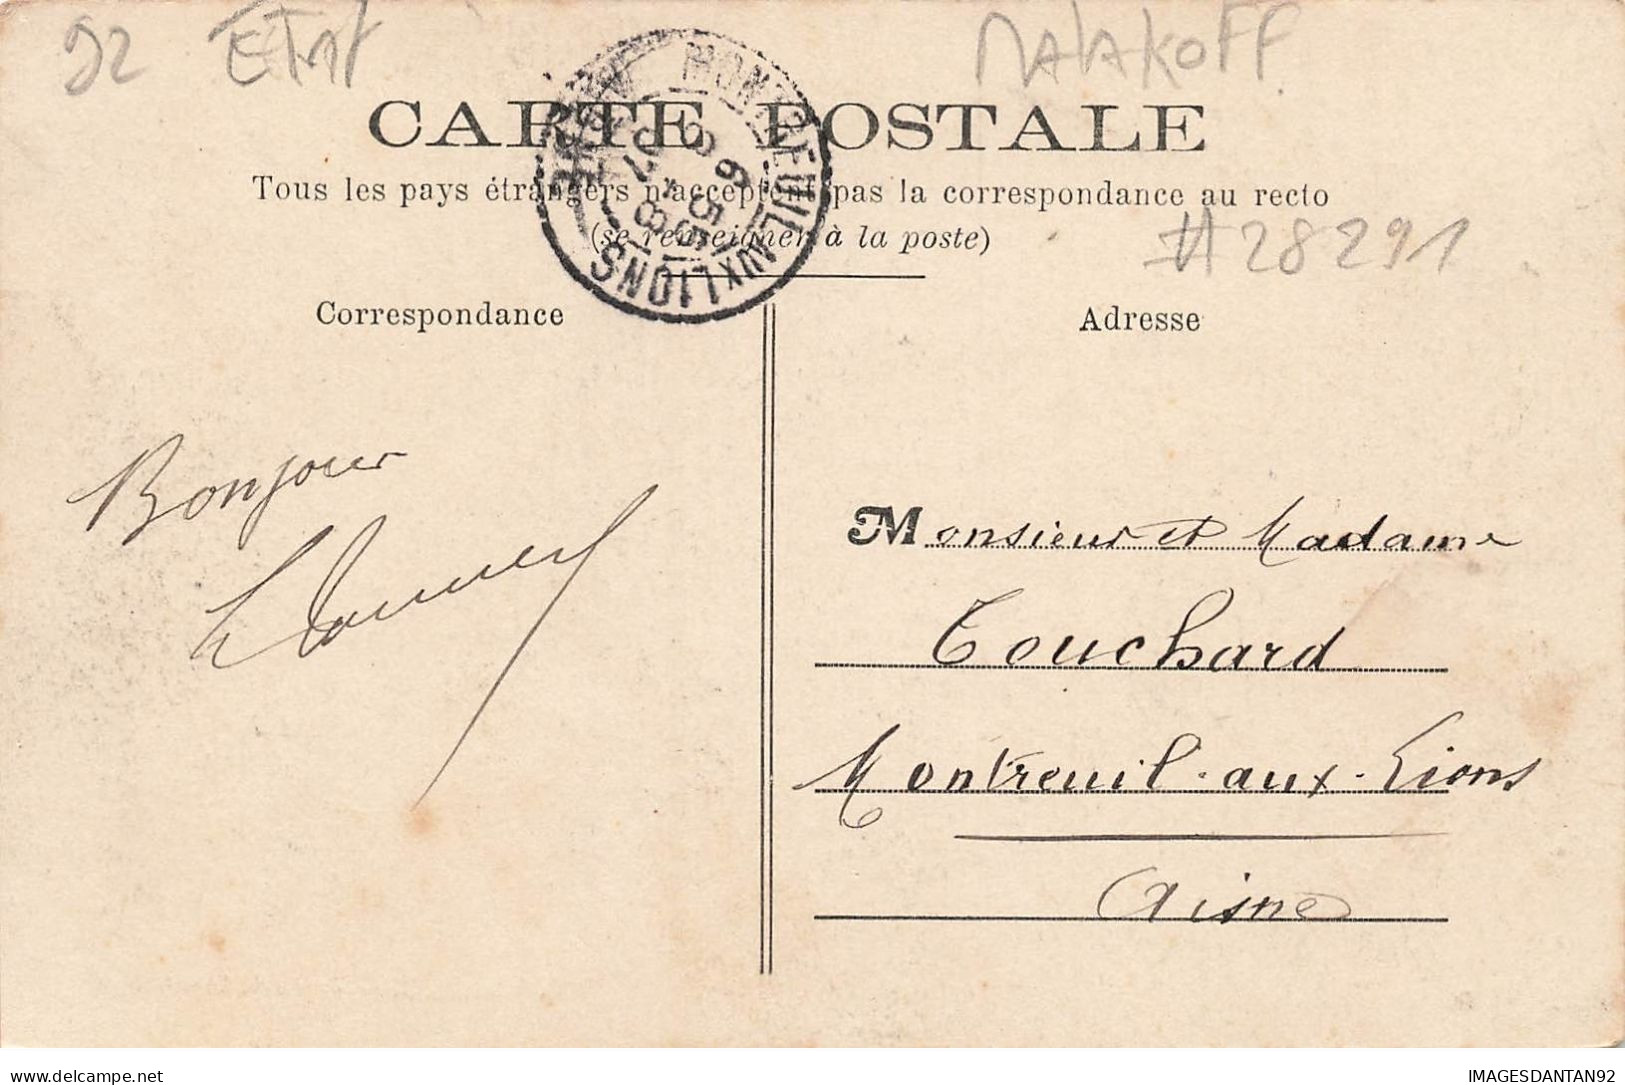 92 Etat Malakoff
CARTE POSTALE
Tous les pays étrangers n'acceptent pas la correspondance au recto
(se renseigner à la poste)
#28291
MONTREUIL AUX LIONS
AISNE
Correspondance
Adresse
Bonjour
Monsieur et Madame
Touchard
Montreuil-aux-Lions
Aisne
IMAGESDANTAN92